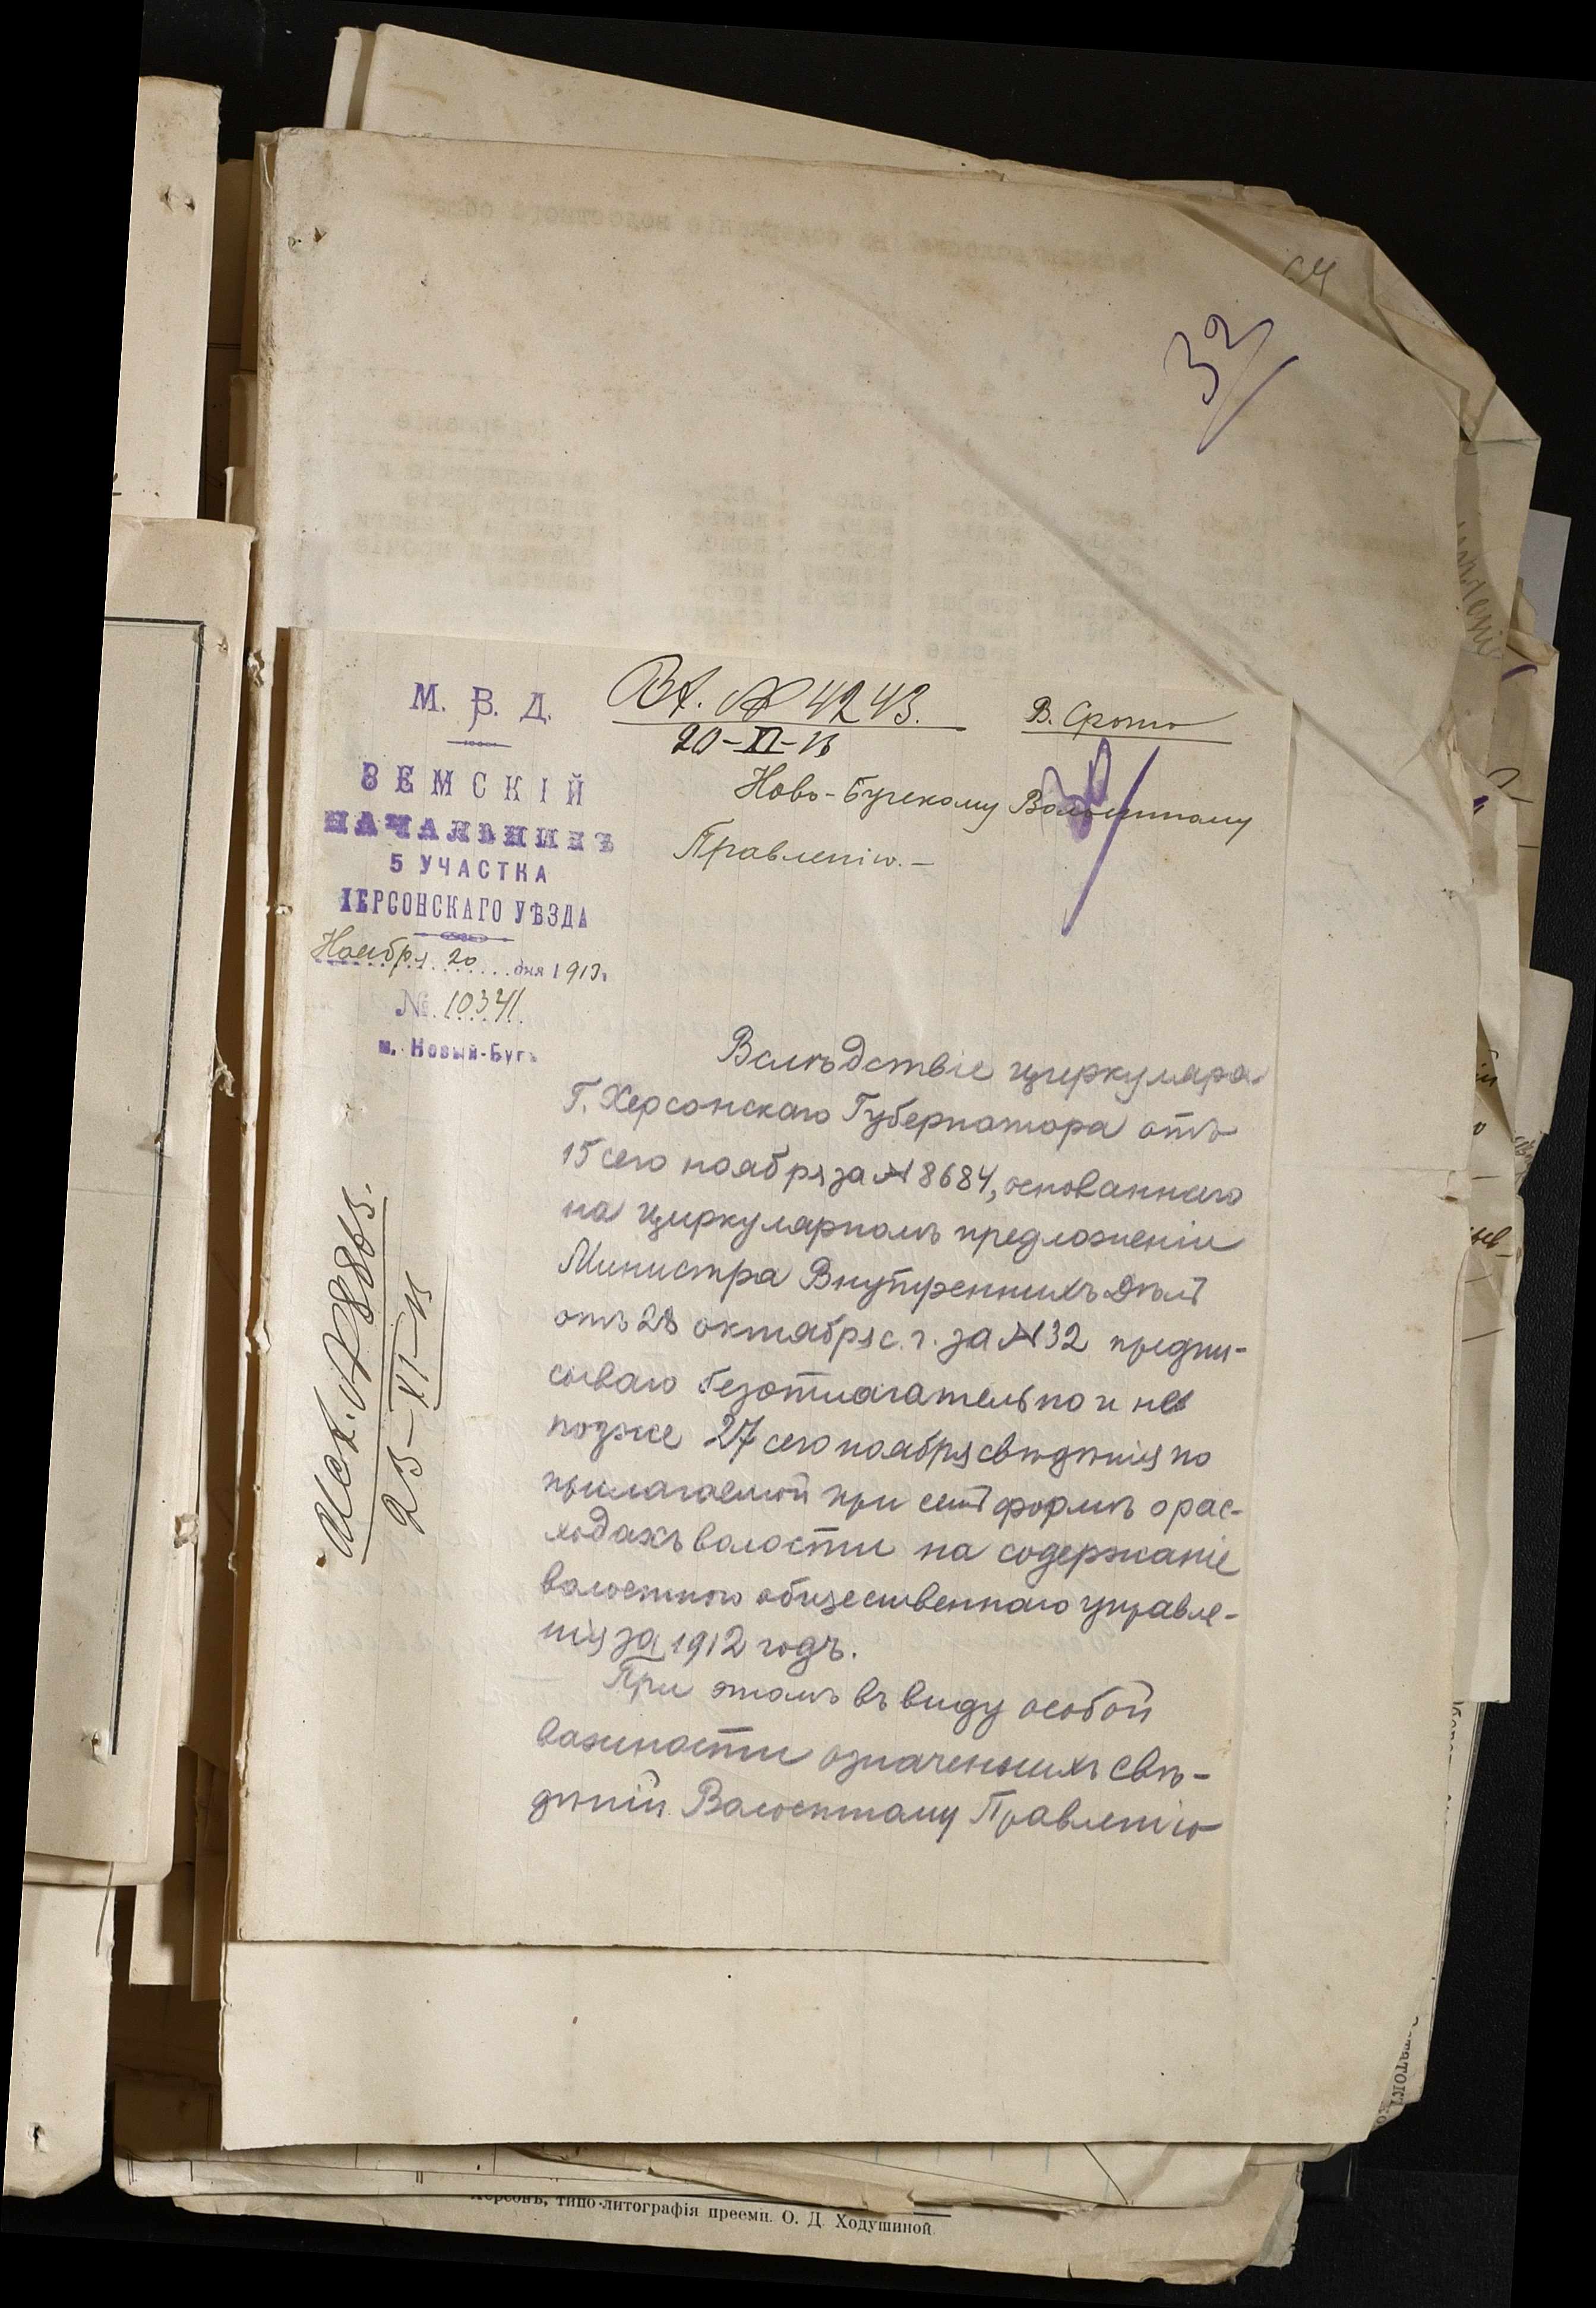 32
М. В. Д.
ЗЕМСКІЙ
НАЧАЛЬНИКЪ
5 УЧАСТКА
ХЕРСОНСКАГО УѢЗДА
Ноября 20 дня 1913г.
№ 10341
м. Новый-Бугъ
Вх. № 4243.
20-XI-13
В. Срочно
Ново-Бугскому Волостному
Правленію.-
Исх. № 8865.
23-XI-13
Вслѣдствіе циркуляра
Г. Херсонскаго Губернатора отъ
15 сего ноября за № 8684, основаннаго
на циркулярномъ предложеніи
Министра Внутреннихъ Дѣлъ
отъ 28 октября с. г. за № 32 предпи-
сываю безотлагательно и не
позже 27 сего ноября свѣдѣнія по
прилагаемой при семъ формѣ о рас-
ходахъ волости на содержаніе
волостного общественнаго управле-
нія за 1912 годъ.
При этомъ въ виду особой
важности означенныхъ свѣ-
дѣній Волостному Правленію
Херсонъ, типо-литографія преемн. О. Д. Ходушиной.